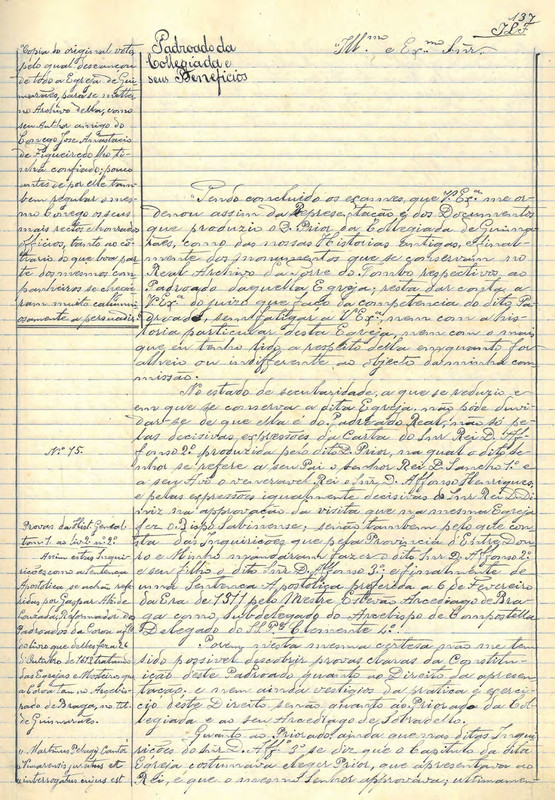 137
Padroado da
Collegiada e
seus Beneficios
Ill.mo e Ex.mo Snr.
Copia do original voto
pelo qual descancou
de todo a Egreja de Gui-
marães, para se metter
no Archivo della, como
seu Author amigo do
Conego José Anastacio
de Figueiredo lho ti-
nha confiado; pouco
antes de por elle tam-
bem regular o mes-
mo Conego os seus
mais rectos e honrados
officios, tanto ao con-
trario do que boa par-
te dos mesmos com-
panheiros se chega-
ram muito calumni-
osamente a persuadir.
Tendo concluido os exames, que V. Ex.a me or-
denou assim da Representação e dos Documentos
que produzio o D. Prior da Collegiada de Guima-
rães, como das nossas Historias Antigas, e final-
mente dos monumentos que se conservam no
Real Archivo da Torre do Tombo respectivos, ao
Padroado daquella Egreja; resta dar conta a
V. Ex.a do juizo que faço da competencia do dito Pa-
droado, sem fatigar a V. Ex.a, nem com a his-
toria particular desta Egreja, nem com o mais
que eu tenho lido a respeito della emquanto for
alheio ou indifferente ao objecto da minha com-
missão.
No estado de secularidade, a que se reduzio e
em que se conserva a dita Egreja, não póde duvi-
dar-se de que ella é do Padroado Real, não só pe-
las decisivas expressões da Carta do Snr. Rei D. Af-
fonso 2.o produzida pelo dito D. Prior, na qual o dito Se-
nhor se refere a seu Pai o Senhor Rei D. Sancho 1.o e
a seu Avô o veneravel Rei o Snr. D. Affonso Henriques,
e pelas expressões igualmente decisivas do Snr. Rei D. Di-
niz na approvação da visita que na mesma Egreja
fez o Bispo Sabinense; senão tambem pelo que cons-
ta das Inquirições que pela Provincia d'Entre Dou-
ro e Minho mandaram fazer o dito Snr. D. Affonso 2.o
e seu filho o dito Snr. D. Affonso 3.o; e finalmente de
uma Sentença Apostolica proferida a 6 de Fevereiro
da Era de 1311 pelo Mestre Estevão Arcediago de Bra-
ga como Subdelegado do Arcebispo de Compostella
Delegado do S. P.e Clemente
Porem nesta mesma certesa não me tem
sido possivel descobrir provas claras da Constitu-
ição deste Padroado quanto ao Direito da apresen-
tação, e nem ainda vestigios da pratica e exerci-
cio deste Direito senão quanto ao Priorado da Col-
legiada e ao seu Arcediago de Sobradello.
Quanto ao Priorado, ainda que nas ditas Inqui-
rições do Snr. D. Aff.o 3.o se diz que o Capitulo da dita
Egreja costumava eleger Prior, que apresentava ao
Rei, e que o mesmo Senhor approvava; ultimamen-
N.o 15.
Provas da Hist. Geneal.
tom. 1. ao liv. 2. n.o 2.o
Assim estas Inqui-
rições como a Sentença
Apostolica se acham refe-
ridas por Gaspar Alz. de
Louzada, Reformador dos
Padroados da Coroa
no livro que delles fez a 26
d'Outubro de 1613, tratando
das Egrejas e Mosteiros que
a Coroa tem no Arcebis-
pado de Braga, no tit.
de Guimarães.
Martinus Pelagii Canto
Vimaranensis juratus et
interrogatus cujus est